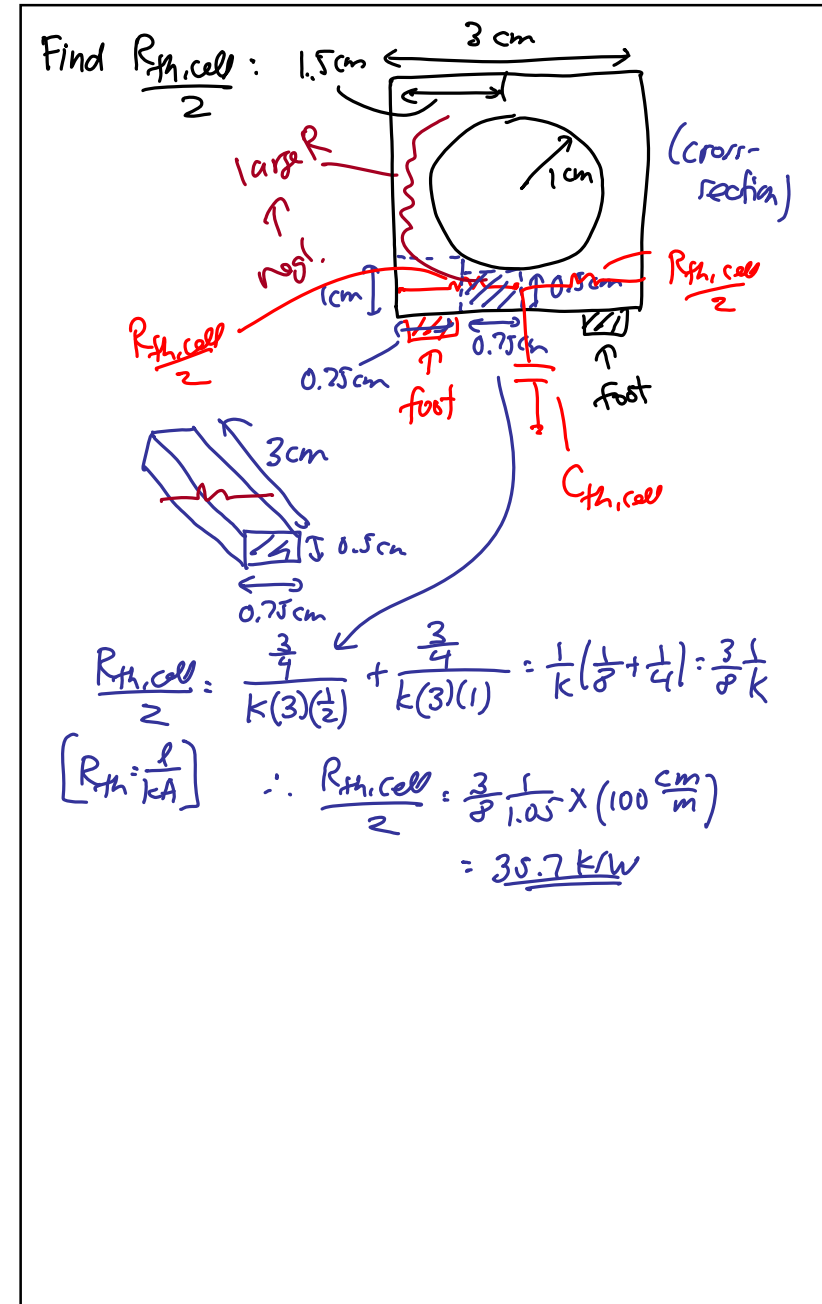 Find R_th,cell / 2 :
1.5 cm
3 cm
large R
negl.
1 cm
(cross-
section)
R_th,cell / 2
0.5 cm
1 cm
R_th,cell / 2
0.75 cm
0.25 cm
foot
foot
C_th,cell
3 cm
0.5 cm
0.75 cm
R_th,cell / 2 = (3/4) / (k(3)(1/2)) + (3/4) / (k(3)(1)) = 1/k (1/8 + 1/4) = 3/8 1/k
[R_th = l/kA] ∴ R_th,cell / 2 = 3/8 1/1.05 × (100 cm/m)
= 35.7 K/W